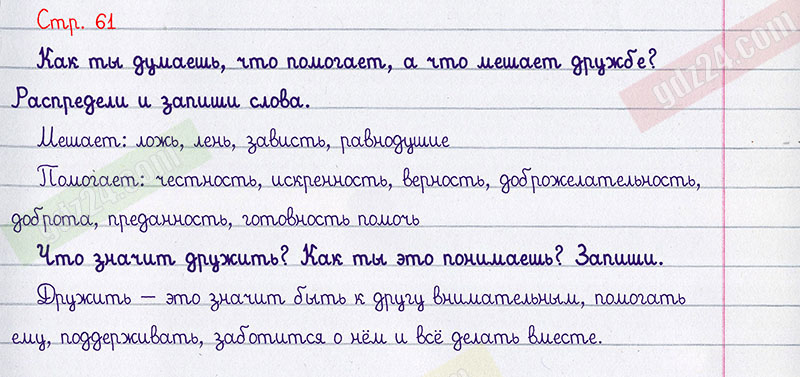 Стр. 61
Как ты думаешь, что помогает, а что мешает дружбе?
Распредели и запиши слова.
Мешает: ложь, лень, зависть, равнодушие
Помогает: честность, искренность, верность, доброжелательность,
доброта, преданность, готовность помочь
Что значит дружить? Как ты это понимаешь? Запиши.
Дружить – это значит быть к другу внимательным, помогать
ему, поддерживать, заботится о нём и всё делать вместе.
gdz24.com
gdz24.com